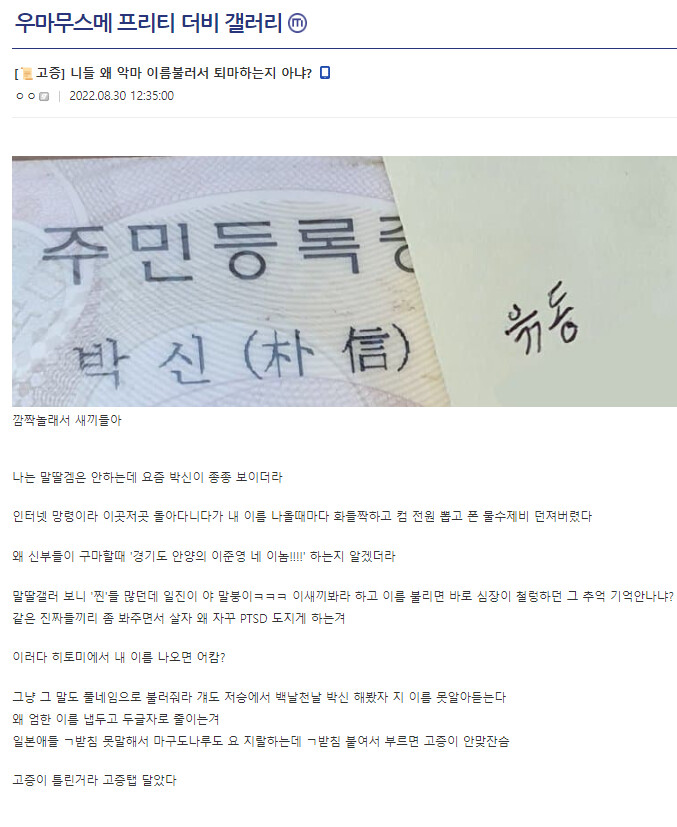 우마무스메 프리티 더비 갤러리 ⓜ
[📜고증] 니들 왜 악마 이름불러서 퇴마하는지 아냐?
ㅇㅇ | 2022.08.30 12:35:00
주민등록증
박 신 (朴 信)
유동
깜짝놀래서 새끼들아
나는 말딸겜은 안하는데 요즘 박신이 종종 보이더라
인터넷 망령이라 이곳저곳 돌아다니다가 내 이름 나올때마다 화들짝하고 컴 전원 뽑고 폰 물수제비 던져버렸다
왜 신부들이 구마할때 '경기도 안양의 이준영 네 이놈!!!!' 하는지 알겠더라
말딸갤러 보니 '찐'들 많던데 일진이 야 말붕이ㅋㅋㅋ 이새끼봐라 하고 이름 불리면 바로 심장이 철렁하던 그 추억 기억안나냐?
같은 진짜들끼리 좀 봐주면서 살자 왜 자꾸 PTSD 도지게 하는겨
이러다 히토미에서 내 이름 나오면 어캄?
그냥 그 말도 풀네임으로 불러줘라 걔도 저승에서 백날천날 박신 해봤자 지 이름 못알아듣는다
왜 엄한 이름 냅두고 두글자로 줄이는겨
일본애들 ㄱ받침 못말해서 마구도나루도 요 지랄하는데 ㄱ받침 붙여서 부르면 고증이 안맞잔슴
고증이 틀린거라 고증탭 달았다